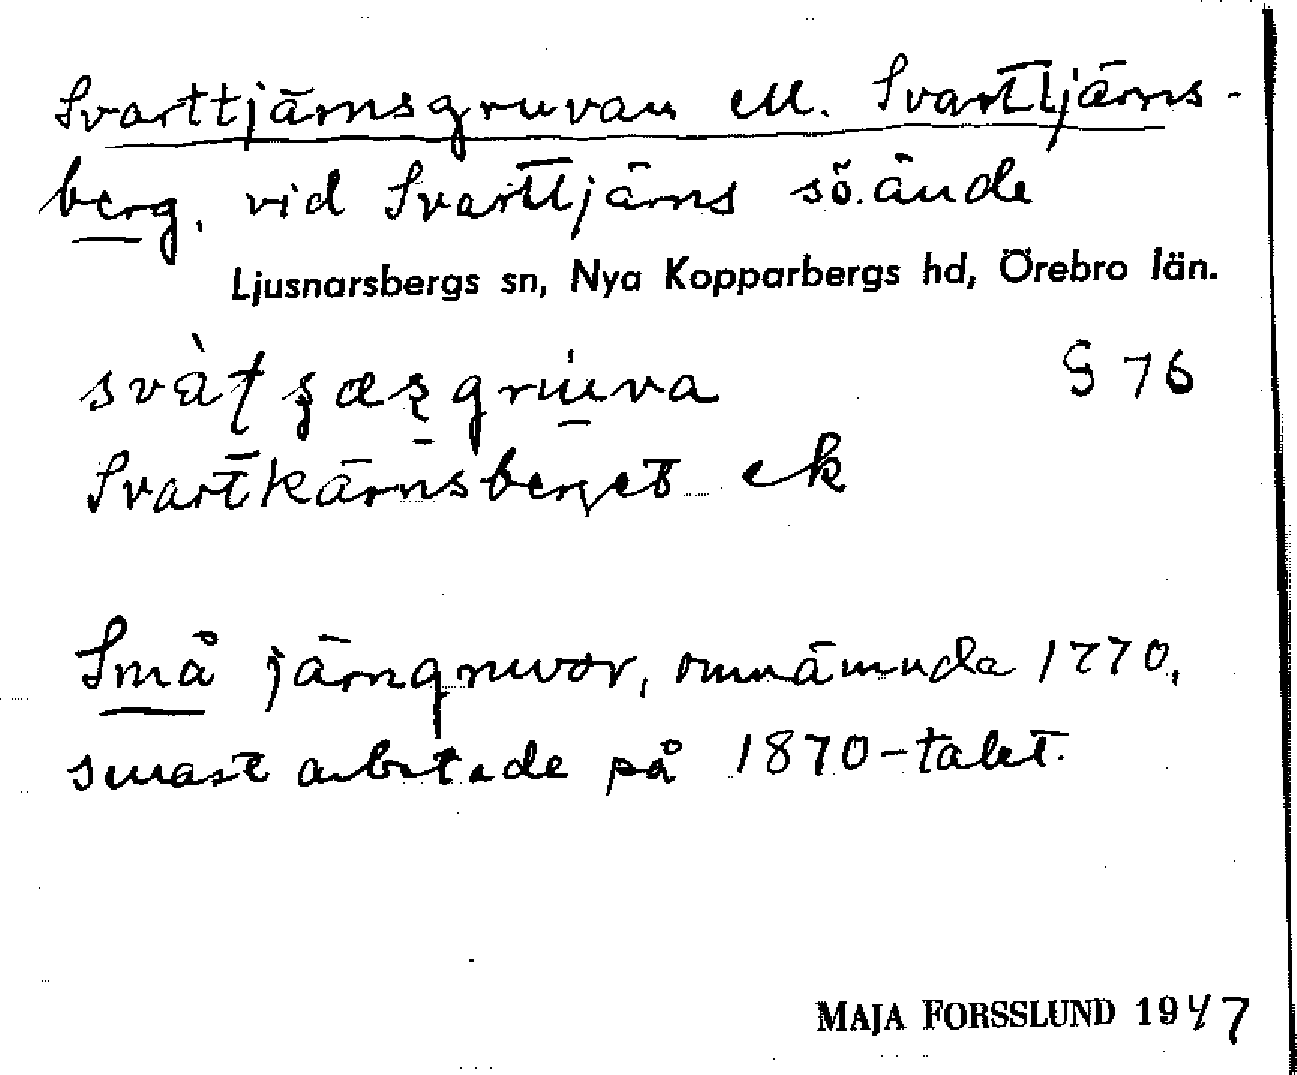 Svarttjärnsgruvan ell. Svarttjärns-
berg, vid Svarttjärns sö. ände
Ljusnarsbergs sn, Nya Kopparbergs hd, Örebro län.
G 76
Svartkärnsberget ek
Små järngruvor, omnämnda 1770,
senast arbetade på 1870-talet.
MAJA FORSSLUND 1947